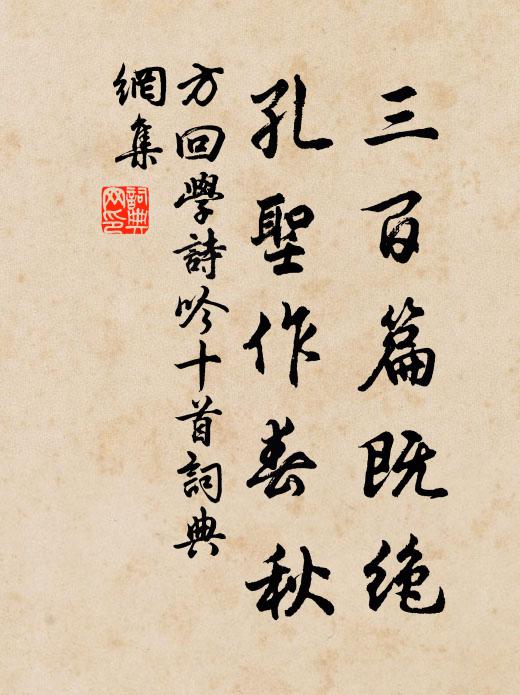 三百篇既绝
孔聖作春秋
方回學詩吟十首詞典
網集
詞典
网印